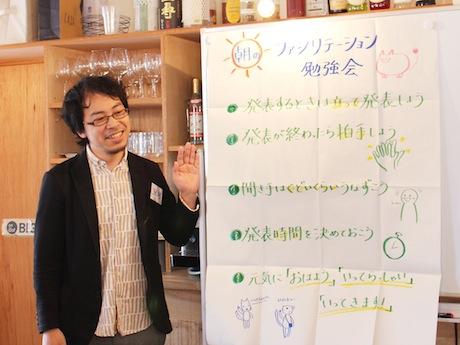 朝の
ファシリテーション
勉強会
発表するときは立って発表しよう
発表が終わったら拍手しよう
聞き手はくどいくらいうなずこう
発表時間を決めておこう
元気に「おはよう」「いってらっしゃい」
「いってきます!」